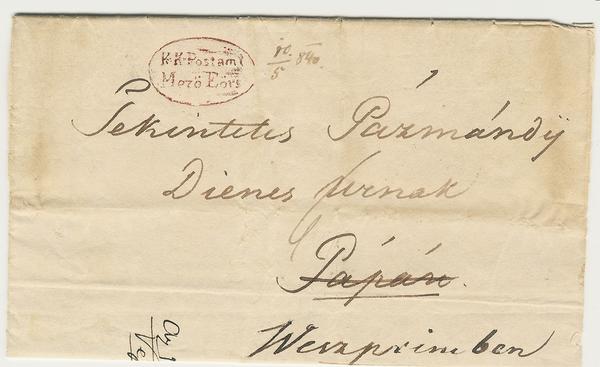 K.K. Postamt
Mezö Eörs
10/5 840.
Tekintetes Pázmándÿ
Dienes Urnak
Pápán.
Weszprimben